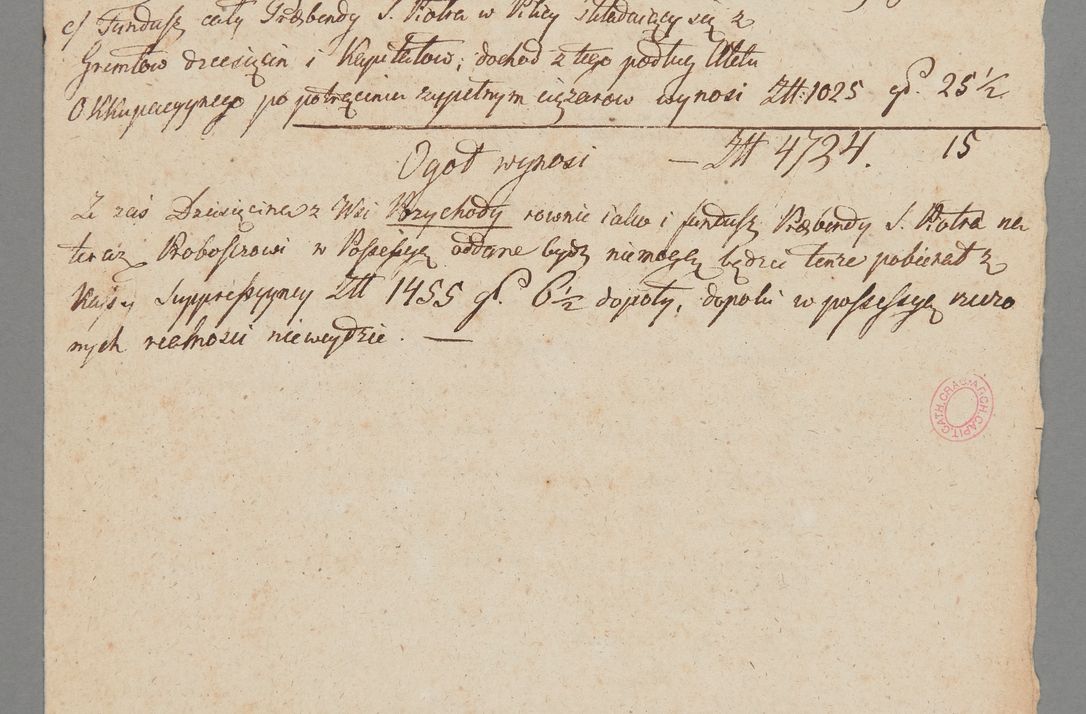 c/ Fundusz cały Præbendy S. Piotra w Pilicy składaiący się z
Gruntow dziesięcin i Kapitałow; dochod z tego podług Aktu
Okkupacyynego po potrąceniu zupełnym ciężarow wynosi Złł: 1025 gr. 25½.
Ogoł wynosi — Złł 4724. 15
Ze zaś Dziesięcina z Wsi Przychody rownie iako i fundusz Præbendy S. Piotra na
teraz Proboszczowi w Possessyą oddane bydź niemogą będzie tenże pobierał z
Kassy Suppressyyney Złł 1455 gr. 6½ dopoty, dopoki w possessyą rzeczo
nych realności niewejdzie. —
ARCH. CAPIT. CATH. CRAC.